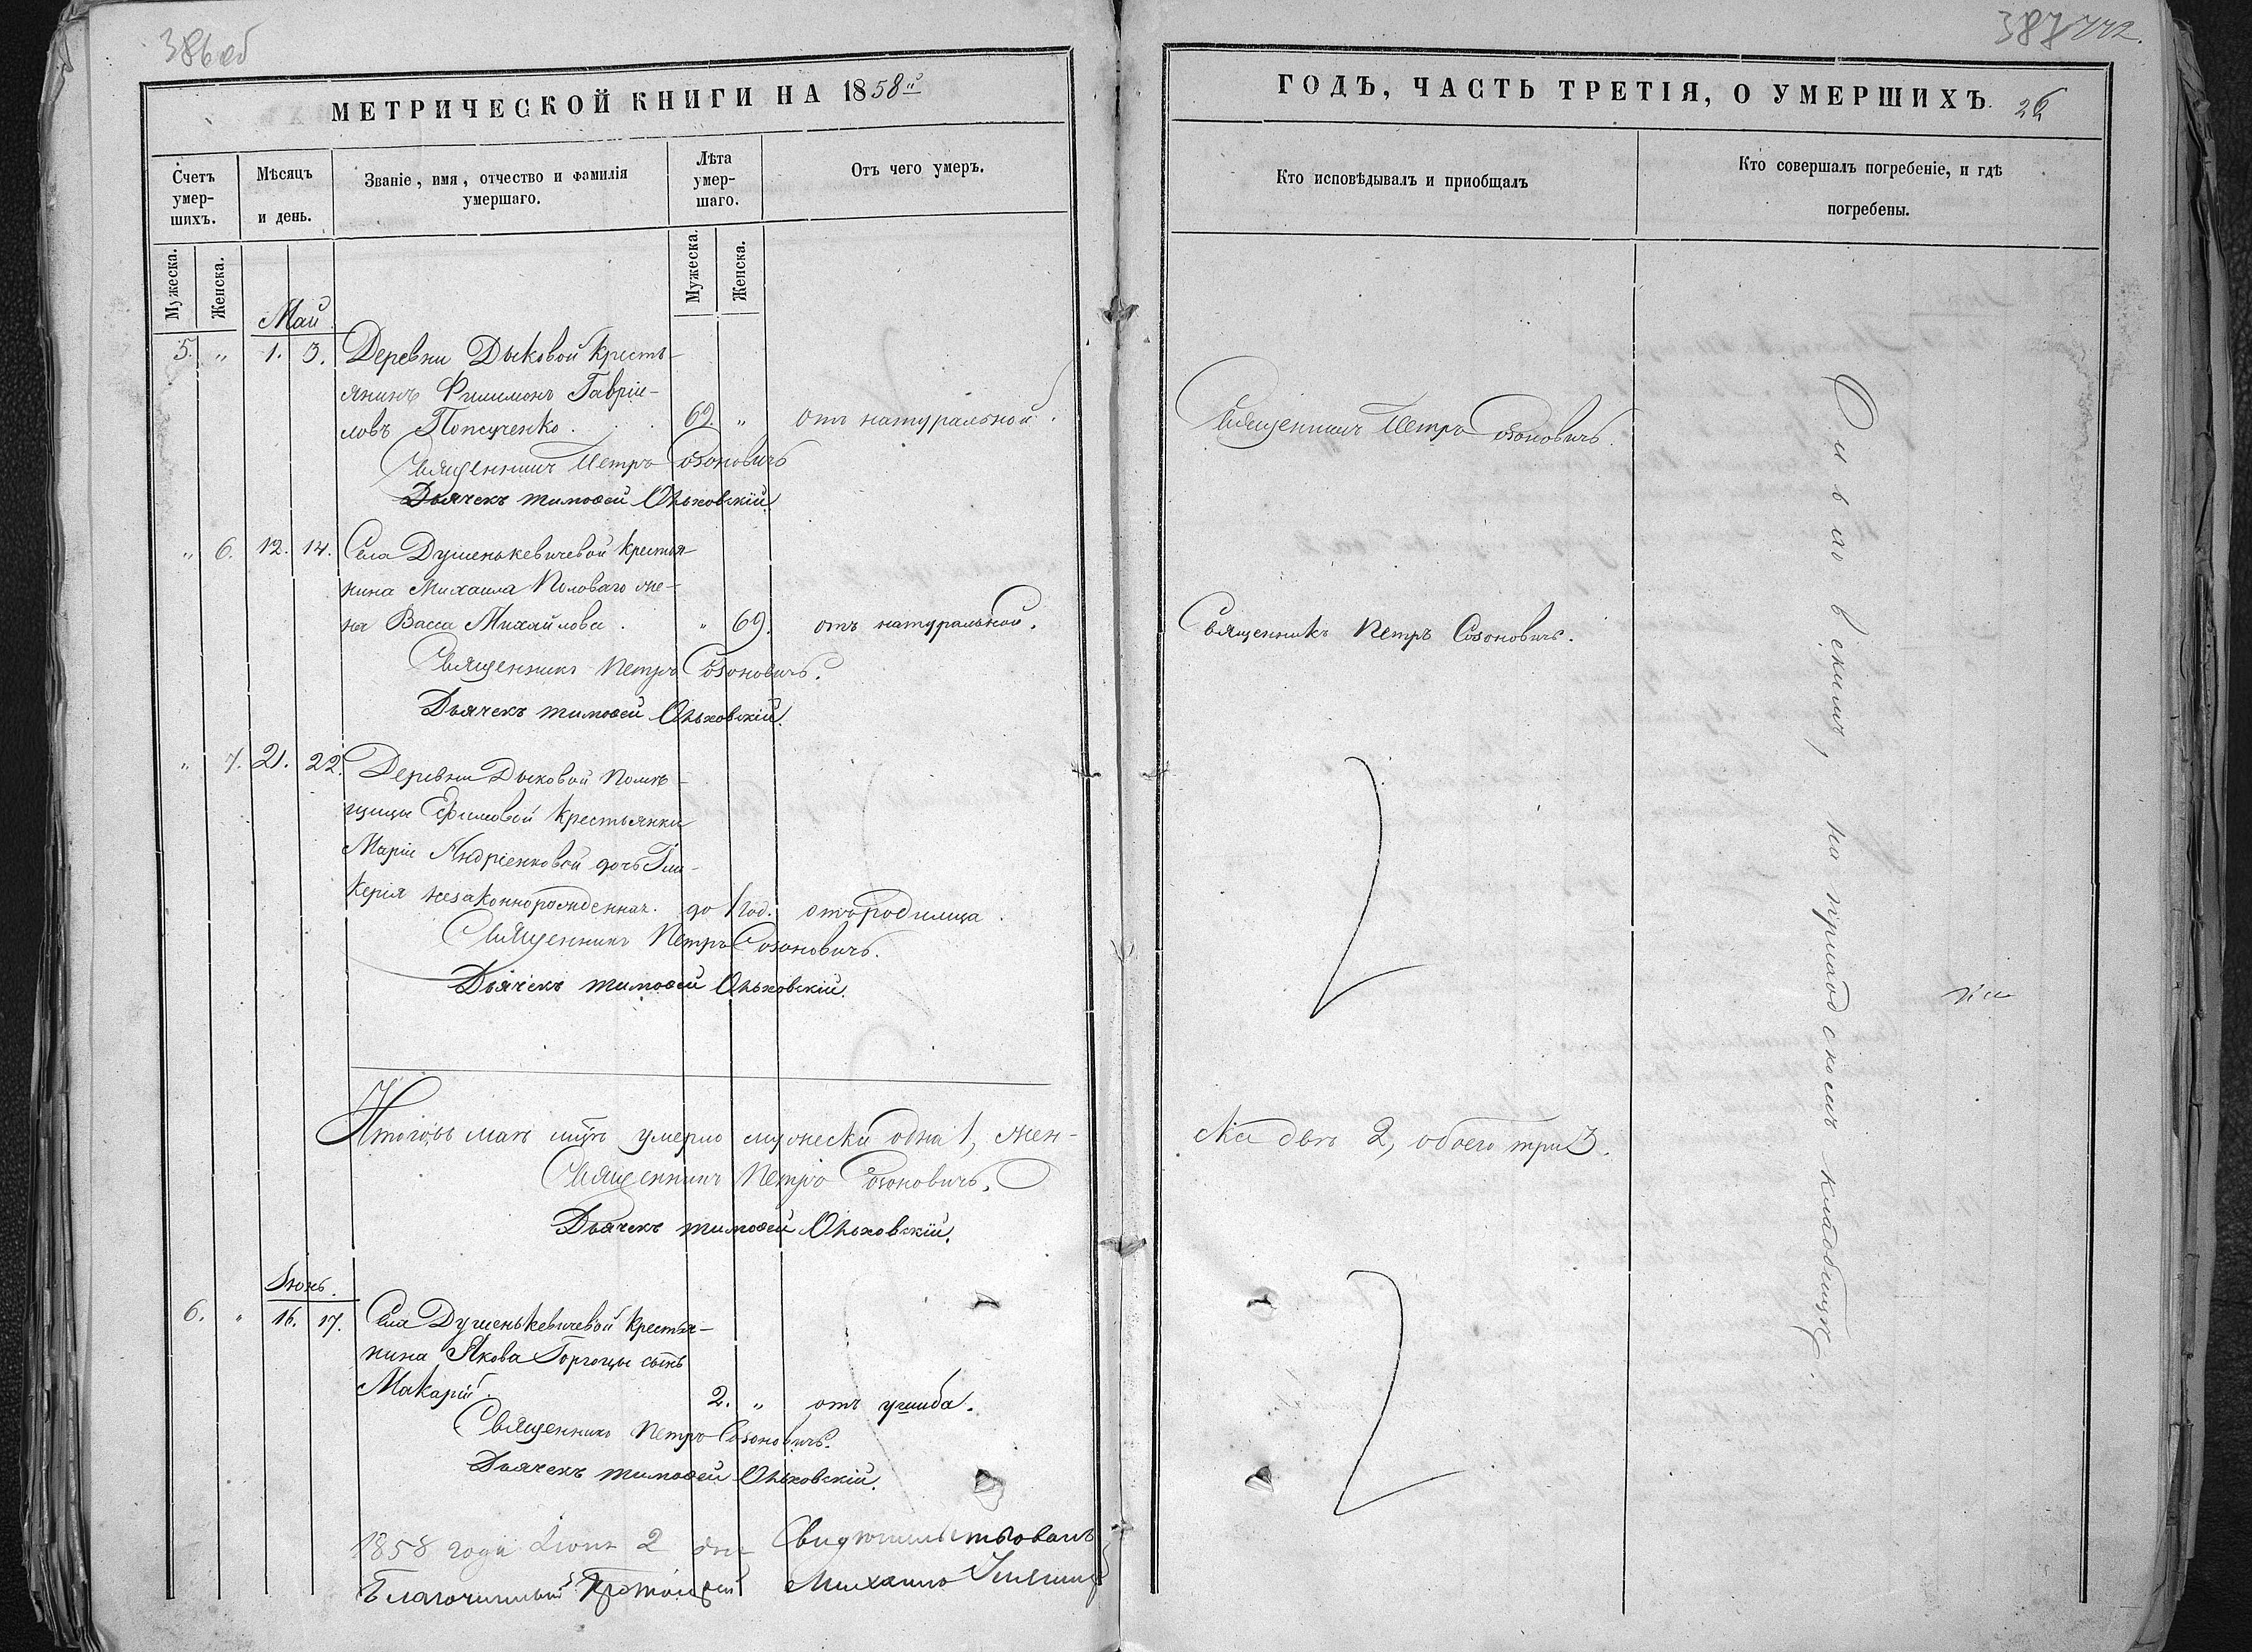 386 об
МЕТРИЧЕСКОЙ КНИГИ НА 1858й
Счетъ умер-
шихъ.
Мѣсяцъ
и день.
Званіе, имя, отчество и фамилія
умершаго.
Лѣта
умер-
шаго.
Отъ чего умеръ.
Мужеска.
Женска.
Мужеска.
Женска.
Май
5. „ 1. 3. Деревни Дыковой кресть-
янинъ Филимонъ Гавріи-
ловъ Попсученко . . . 69. „ отъ натуральной.
Священникъ Петръ Созоновичъ
Дьячекъ Тимоѳей Ольховскій
„ 6. 12. 14. Села Душенькевичевой крестья-
нина Михаила Половаго же-
на Васса Михайлова . „ 69. отъ натуральной.
Священникъ Петръ Созоновичъ.
Дьячекъ Тимоѳей Ольховскій.
„ 7. 21. 22. Деревни Дыковой помѣ-
щицы Ефимовой крестьянки
Маріи Андріенковой дочь Гли-
керія незаконнорожденная. до 1 год. отъ родимца.
Священникъ Петръ Созоновичъ.
Дьячекъ Тимоѳей Ольховскій.
Итого въ маѣ мцѣ умерло мужеска одна 1, жен-
Священникъ Петръ Созоновичъ.
Дьячекъ Тимоѳей Ольховскій.
Іюнь.
6. „ 16. 17. Села Душенькевичевой крестья-
нина Якова Горгоцы сынъ
Макарій. 2. „ отъ ушиба.
Священникъ Петръ Созоновичъ.
Дьячекъ Тимоѳей Ольховскій.
1858 года 2 дня Свидѣтельствовалъ
Благочинный Протоіерей Михаилъ
387
772.
ГОДЪ, ЧАСТЬ ТРЕТІЯ, О УМЕРШИХЪ.
26
Кто исповѣдывалъ и приобщалъ
Кто совершалъ погребеніе, и гдѣ
погребены.
Священникъ Петръ Созоновичъ.
Священникъ Петръ Созоновичъ.
ска двѣ 2, обоего три 3.
на приходскомъ кладбищѣ.